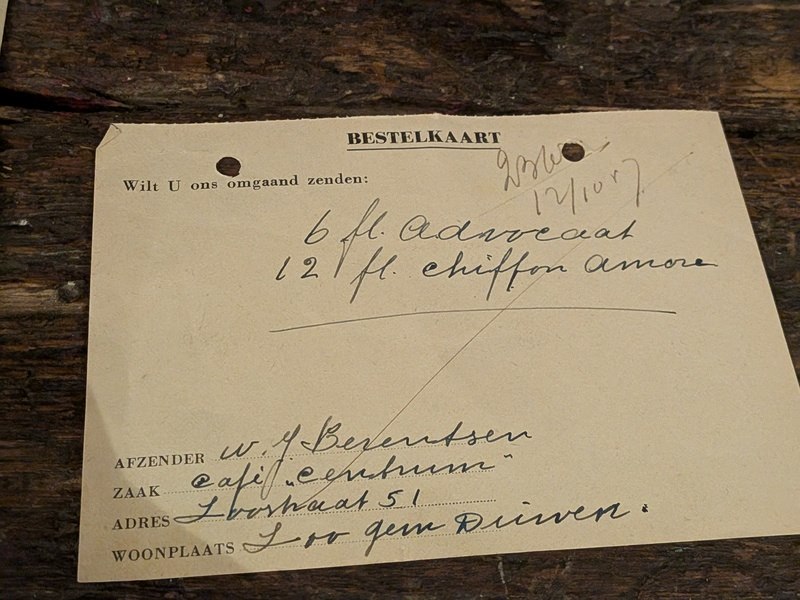 BESTELKAART
12/10 57
Wilt U ons omgaand zenden:
6 fl. advocaat
12 fl. chiffon amore
AFZENDER W. J Berentsen
ZAAK café „centrum"
ADRES Loostraat 51
WOONPLAATS Loo gem Duiven.